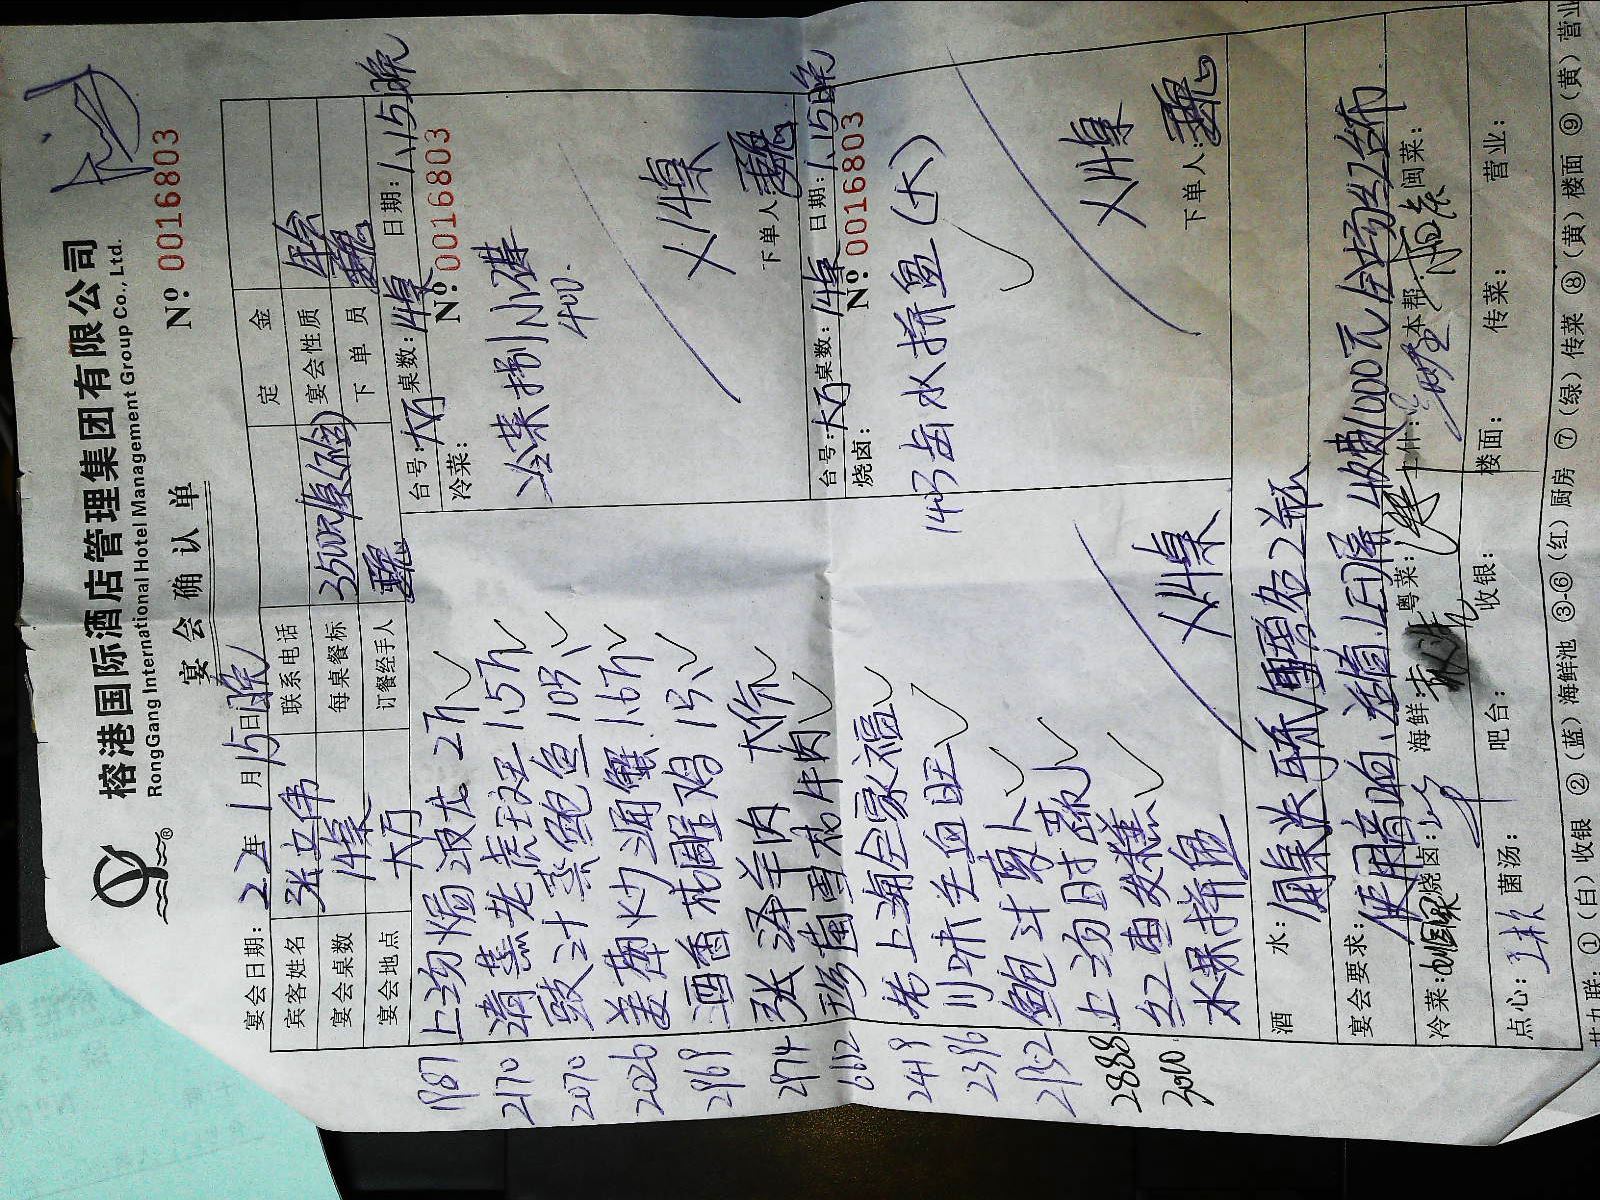 榕港国际酒店管理集团有限公司
RongGang International Hotel Management Group Co., Ltd.
宴会确认单
Nº 0016803
宴会日期: 22年 1月15日晚
定金
宾客姓名 张立伟 联系电话 宴会性质 年会
宴会桌数 14桌 每桌餐标 3500元/桌 下单员 魏
宴会地点 大厅 订餐经手人 魏
台号: 大厅 桌数: 14桌 日期: 1.15晚
冷菜: Nº 0016803
冷菜捌小碟
400.
×14桌
下单人: 魏
台号: 大厅 桌数: 14桌 日期: 1.15晚
烧卤: Nº 0016803
卤水拼盘(大)
×14桌
下单人: 魏
1987 上汤焗波龙 2斤
2170 清蒸老虎斑 1.5斤
2070 豉汁蒸鲍鱼 10只
2026 姜葱炒海蟹 1.6斤
2969 酒香花雕鸡 1只
2974 张泽羊肉 大份
6612 珍菌雪花牛肉
2449 老上海全家福
2396 川味毛血旺
2132 鲍汁萝卜
2888 上汤时蔬
3010 红枣发糕
水果拼盘
×14桌
酒水:
宴会要求: 使用音响、话筒.LED屏 收费1000元 全场红台布
冷菜: 烧卤: 海鲜: 粤菜: 上什: 本帮: 闽菜:
点心: 菌汤: 吧台: 收银: 楼面: 传菜: 营业:
共九联: ①(白)收银 ②(蓝)海鲜池 ③-⑥(红)厨房 ⑦(绿)传菜 ⑧(黄)楼面 ⑨(黄)营业